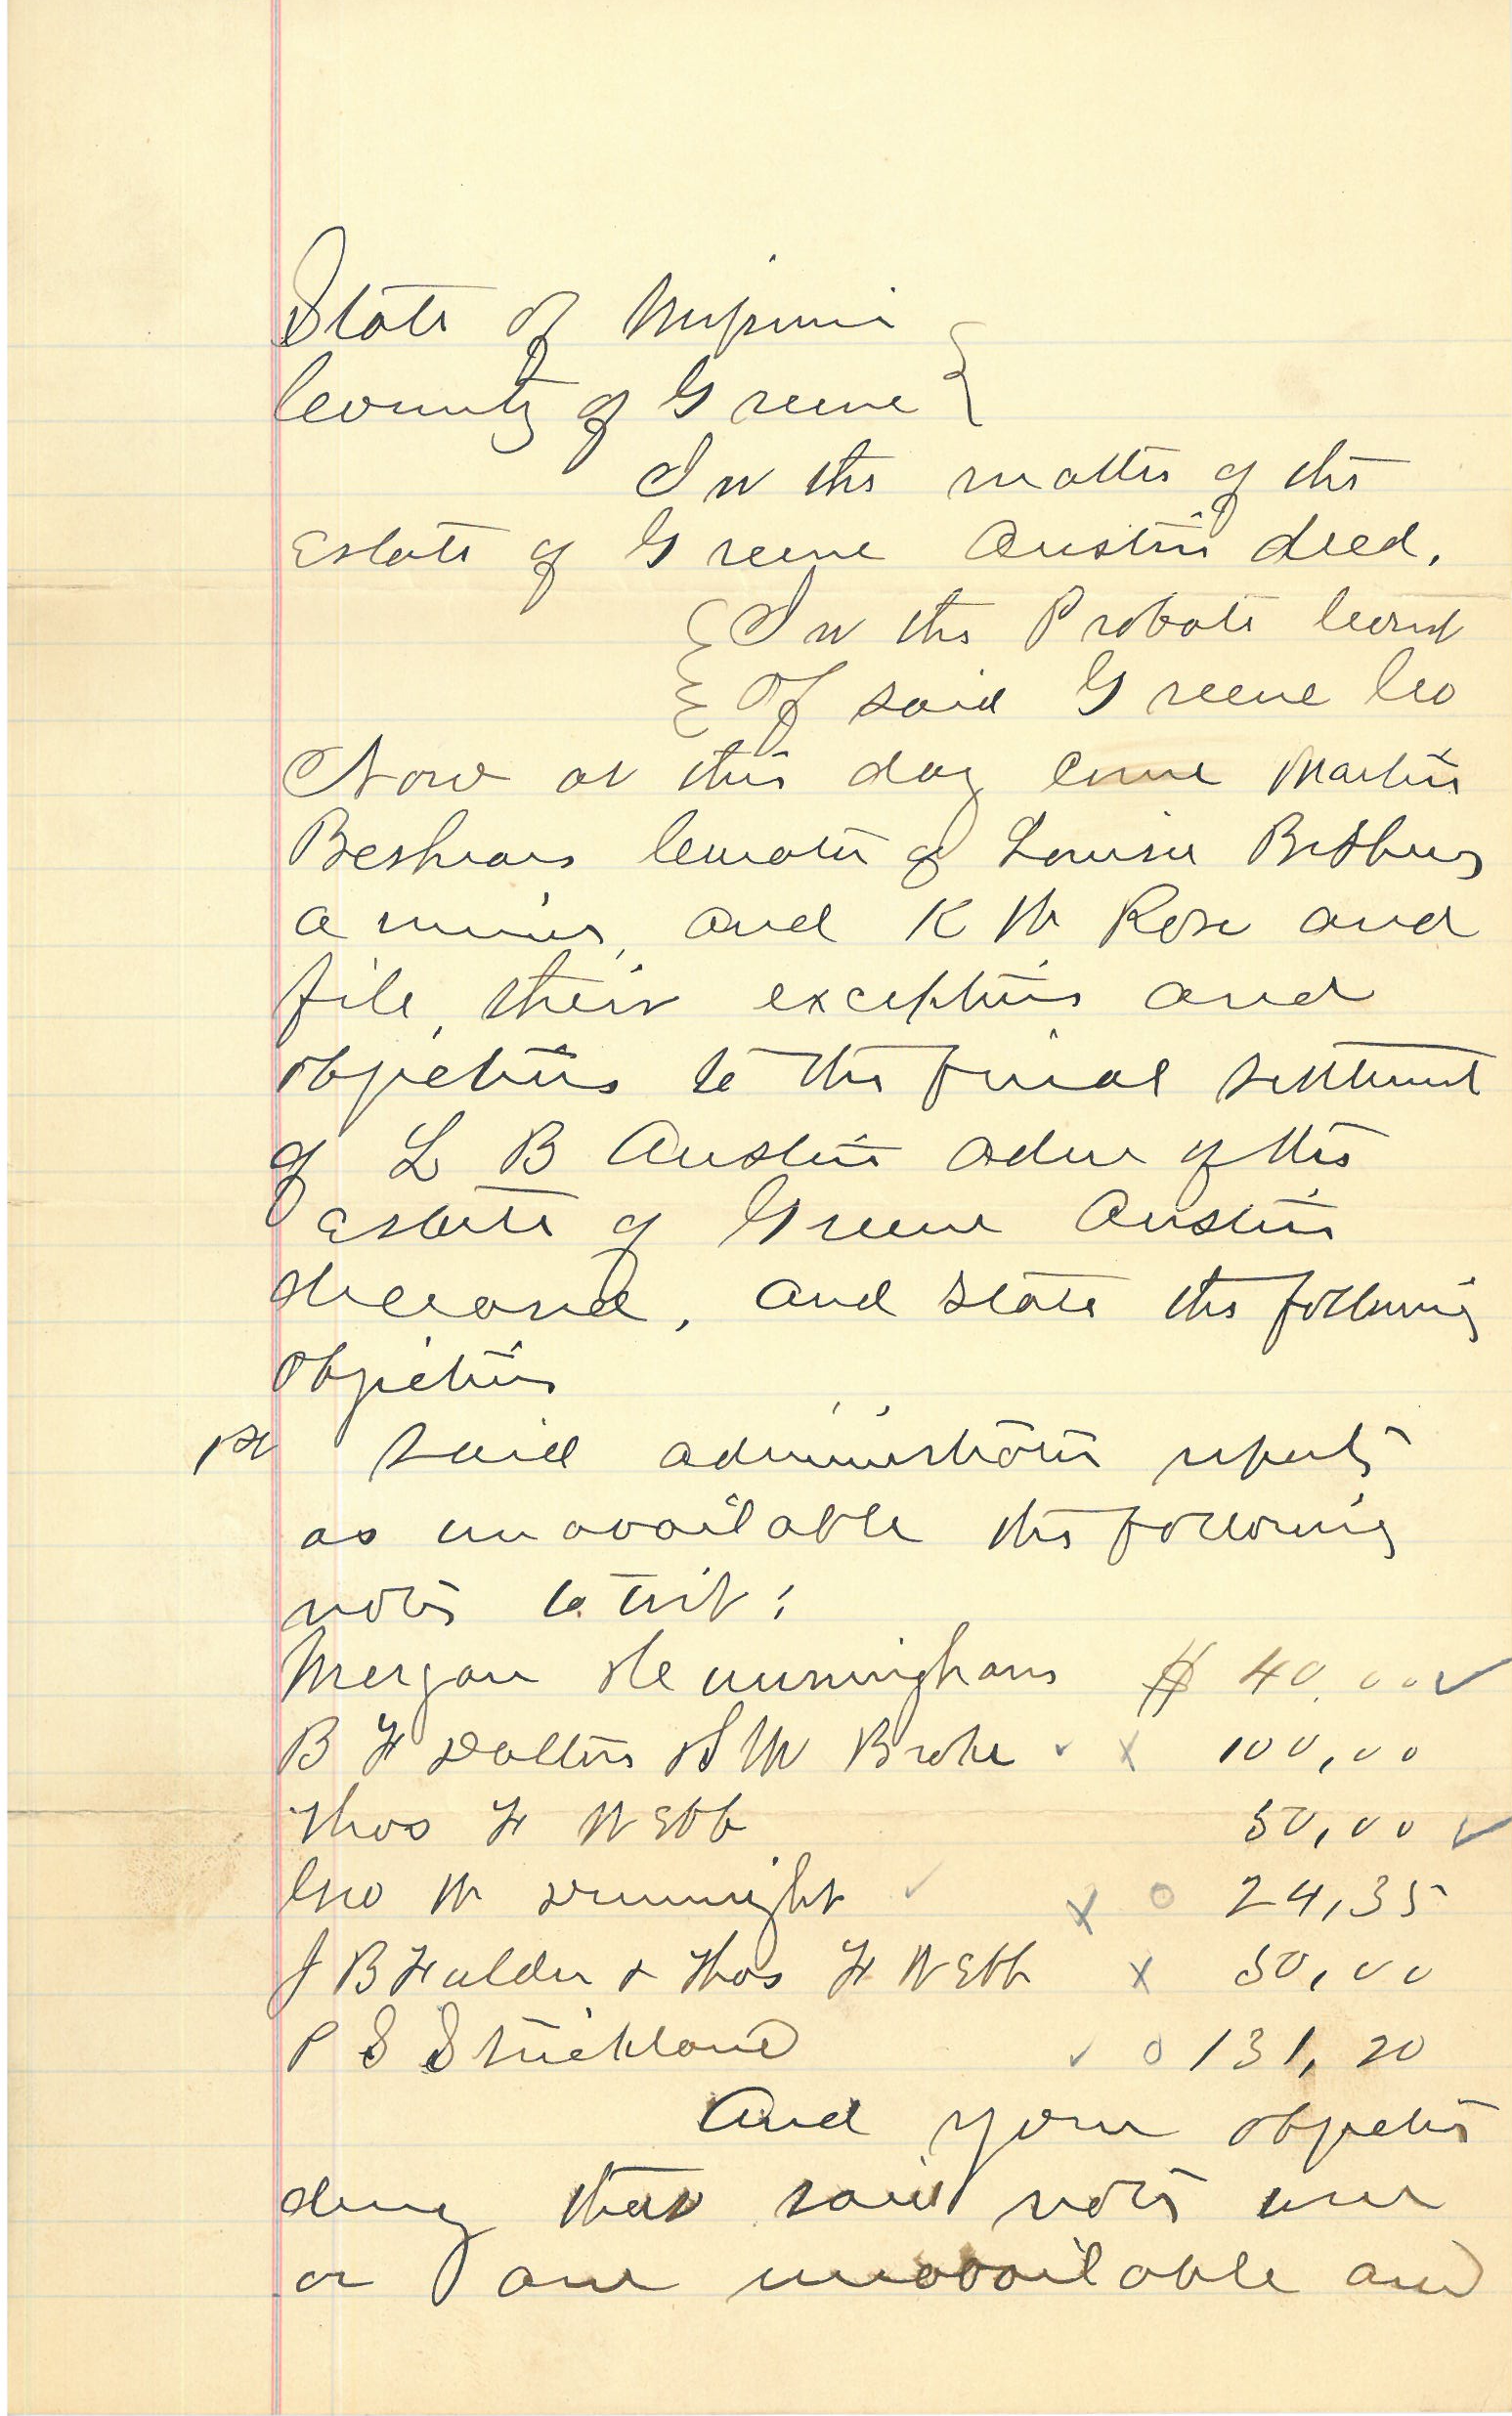 State of Missouri
County of Greene
In the matter of the
Estate of Greene Austin decd.
In the Probate Court
Of said Greene Co
Now at this day come Martin
Beshears Curator of Louisa Beshears
a minor, and K M Rose and
file, their exceptions and
objections to the final settlement
of L B Austin admr of the
Estate of Greene Austin
deceased, and state the following
objections
1st said administrator reports
as unavailable the following
notes to wit;
Morgan $ 40.00 ✓
B F M ✓ x 100,00
Thos F Webb 50,00 ✓
Geo W ✓ x o 24,35
J B Fulder & Thos F Webb x 50,00
P S Strickland ✓ o 131, 20
And your objectors
deny that said notes were
or are unavailable and